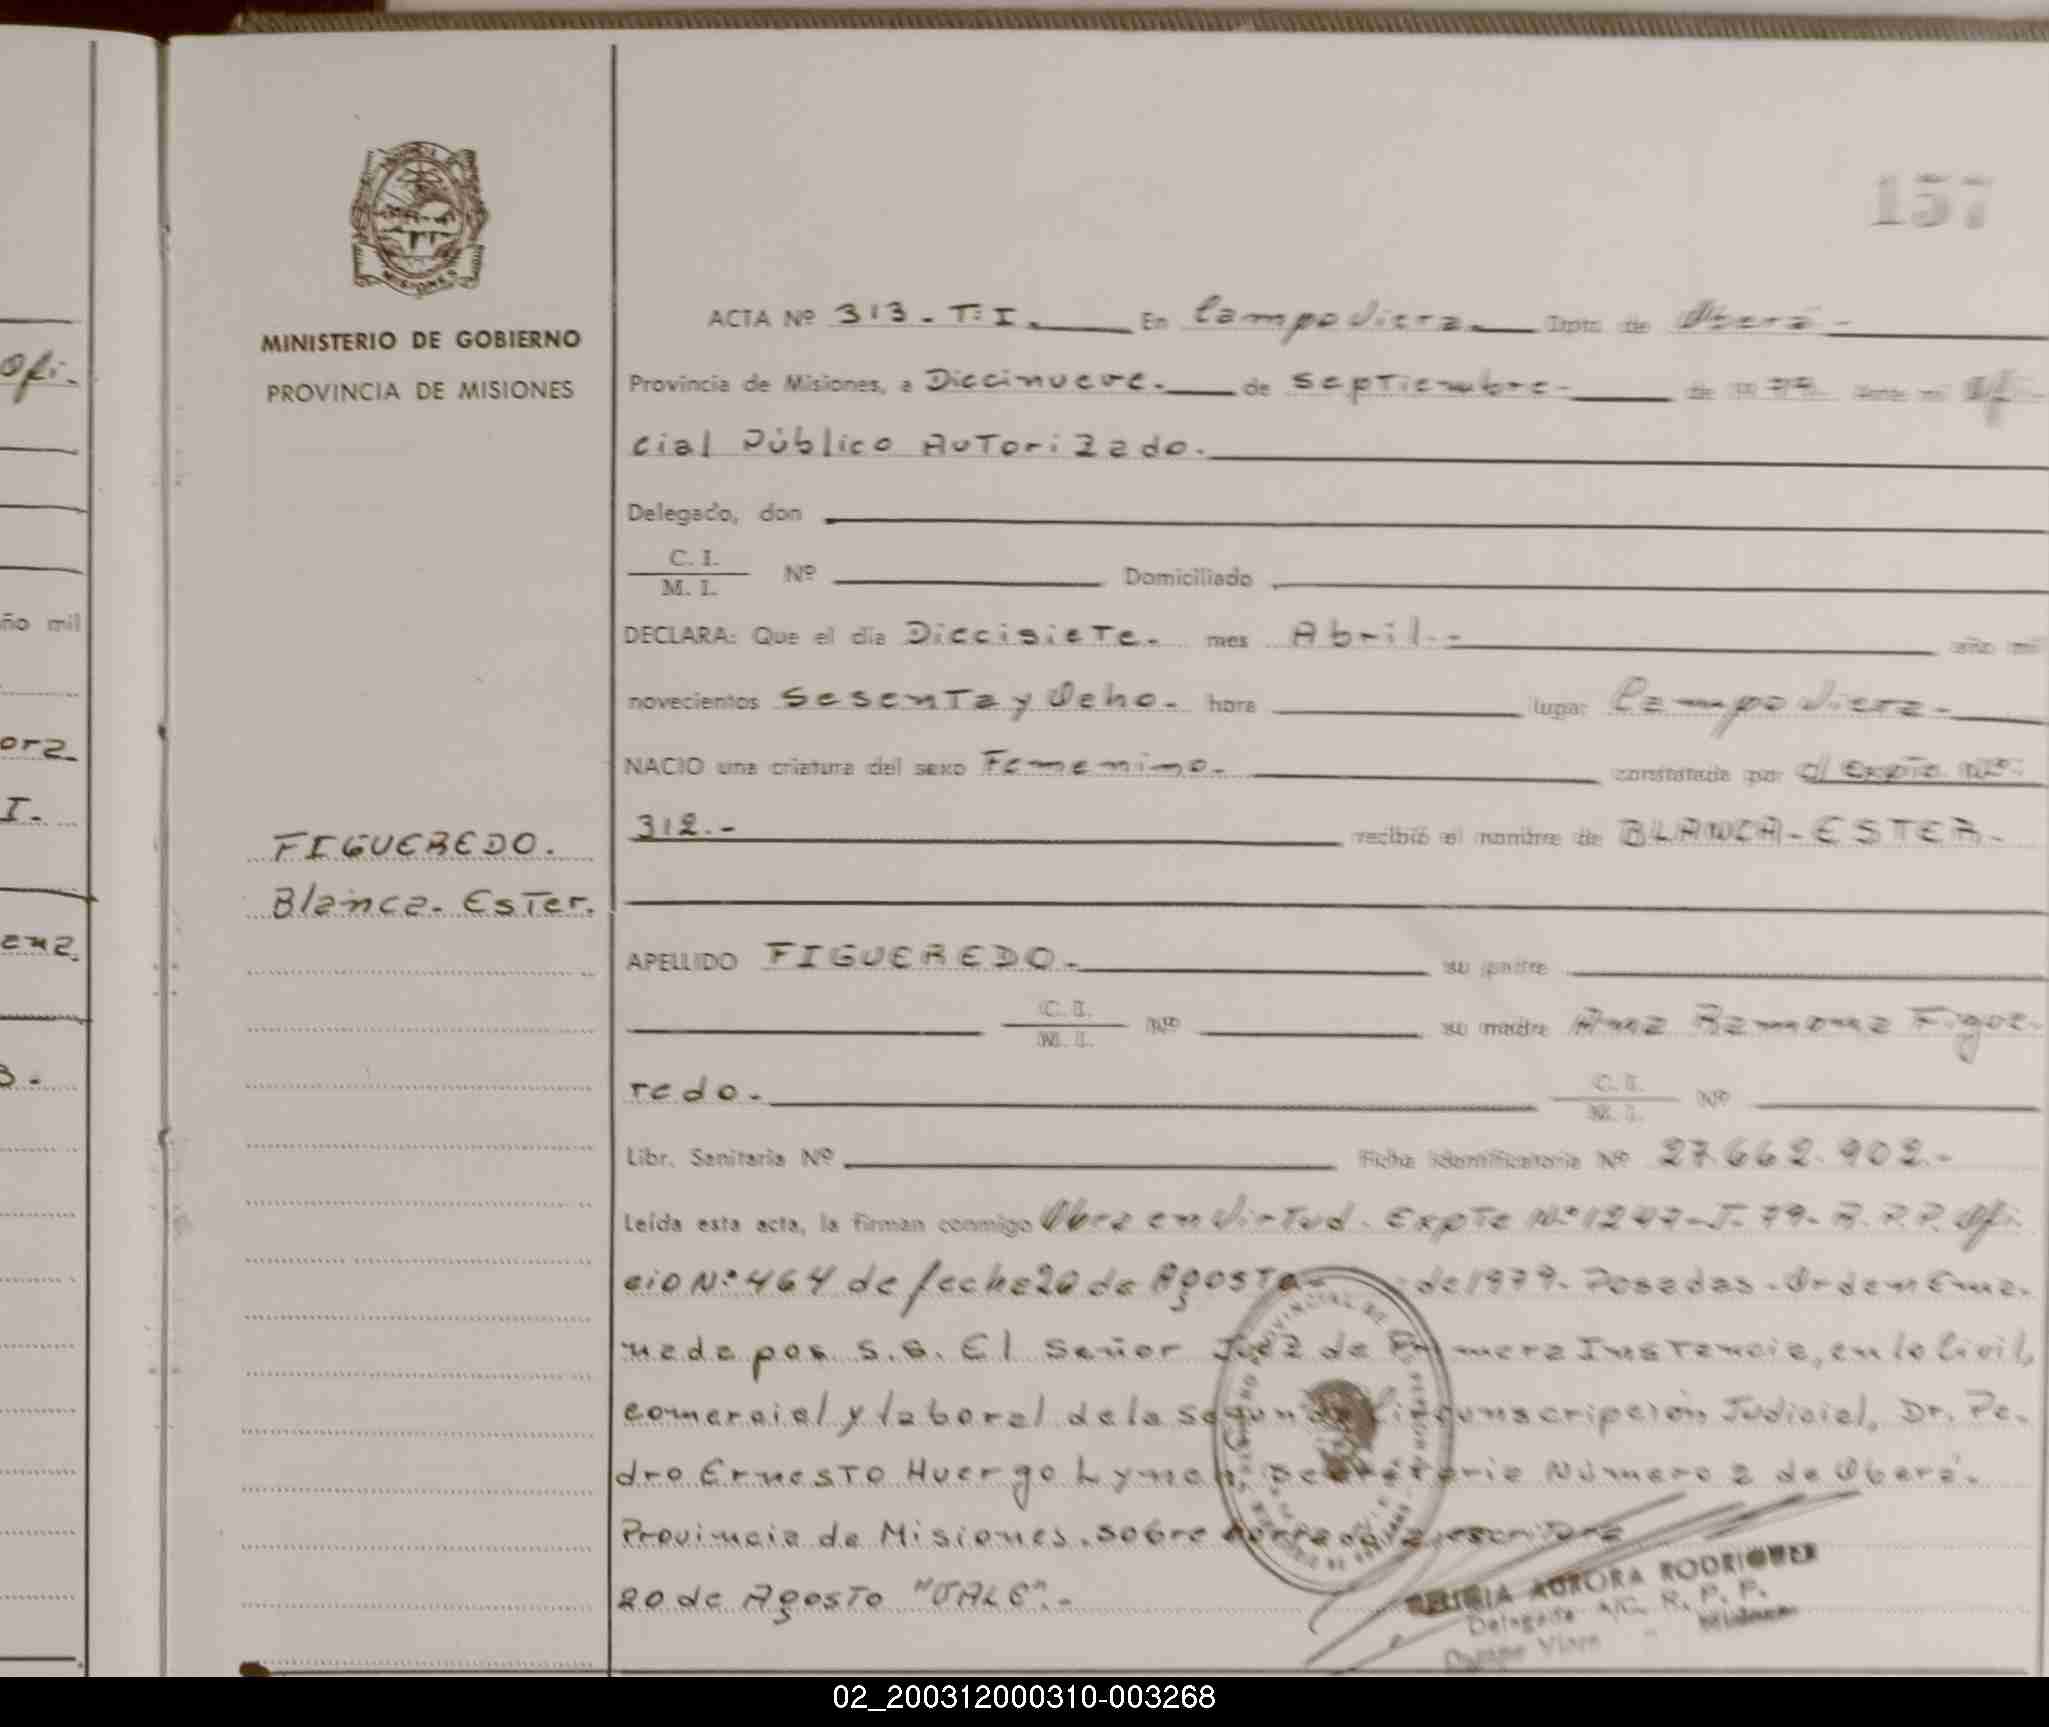 157
MISIONES
MINISTERIO DE GOBIERNO
PROVINCIA DE MISIONES
FIGUEREDO.
Blanca. Ester.
ACTA Nº 313 - T: I. En Campo Viera. Dpto. de Oberá -
Provincia de Misiones, a Diecinueve. de Septiembre - de 1979. Ante mí Ofi-
cial Público Autorizado.
Delegado, don
C. I.
M. I. Nº Domiciliado
DECLARA: Que el día Diecisiete. mes Abril. - año mil
novecientos Sesenta y Ocho. hora lugar Campo Viera. -
NACIO una criatura del sexo Femenino. constatada por c/ Expte. Nº:
312. - recibió el nombre de BLANCA - ESTER. -
APELLIDO FIGUEREDO. su padre
C. I.
M. I. Nº su madre Ana Ramona Figue-
redo. C. I.
M. I. Nº
Libr. Sanitaria Nº Ficha Identificatoria Nº 27.662.902. -
Leída esta acta, la firman conmigo Obra en Virtud. Expte Nº 1247-J-79- R.P.P. Ofi-
cio Nº 464 de fecha 20 de Agosto - de 1979. Posadas. Orden Ema-
nada por S.S. El Señor Juez de Primera Instancia, en lo Civil,
comercial y laboral de la Segunda Circunscripción Judicial, Dr. Pe-
dro Ernesto Huergo Lynch, Secretaria Número 2 de Oberá. -
Provincia de Misiones. sobre
20 de Agosto "VALE". -
AURORA RODRIGUEZ
Delegada A/C. R. P. P.
Campo Viera - Misiones
ofi-
año mil
ora
I.
02_200312000310-003268